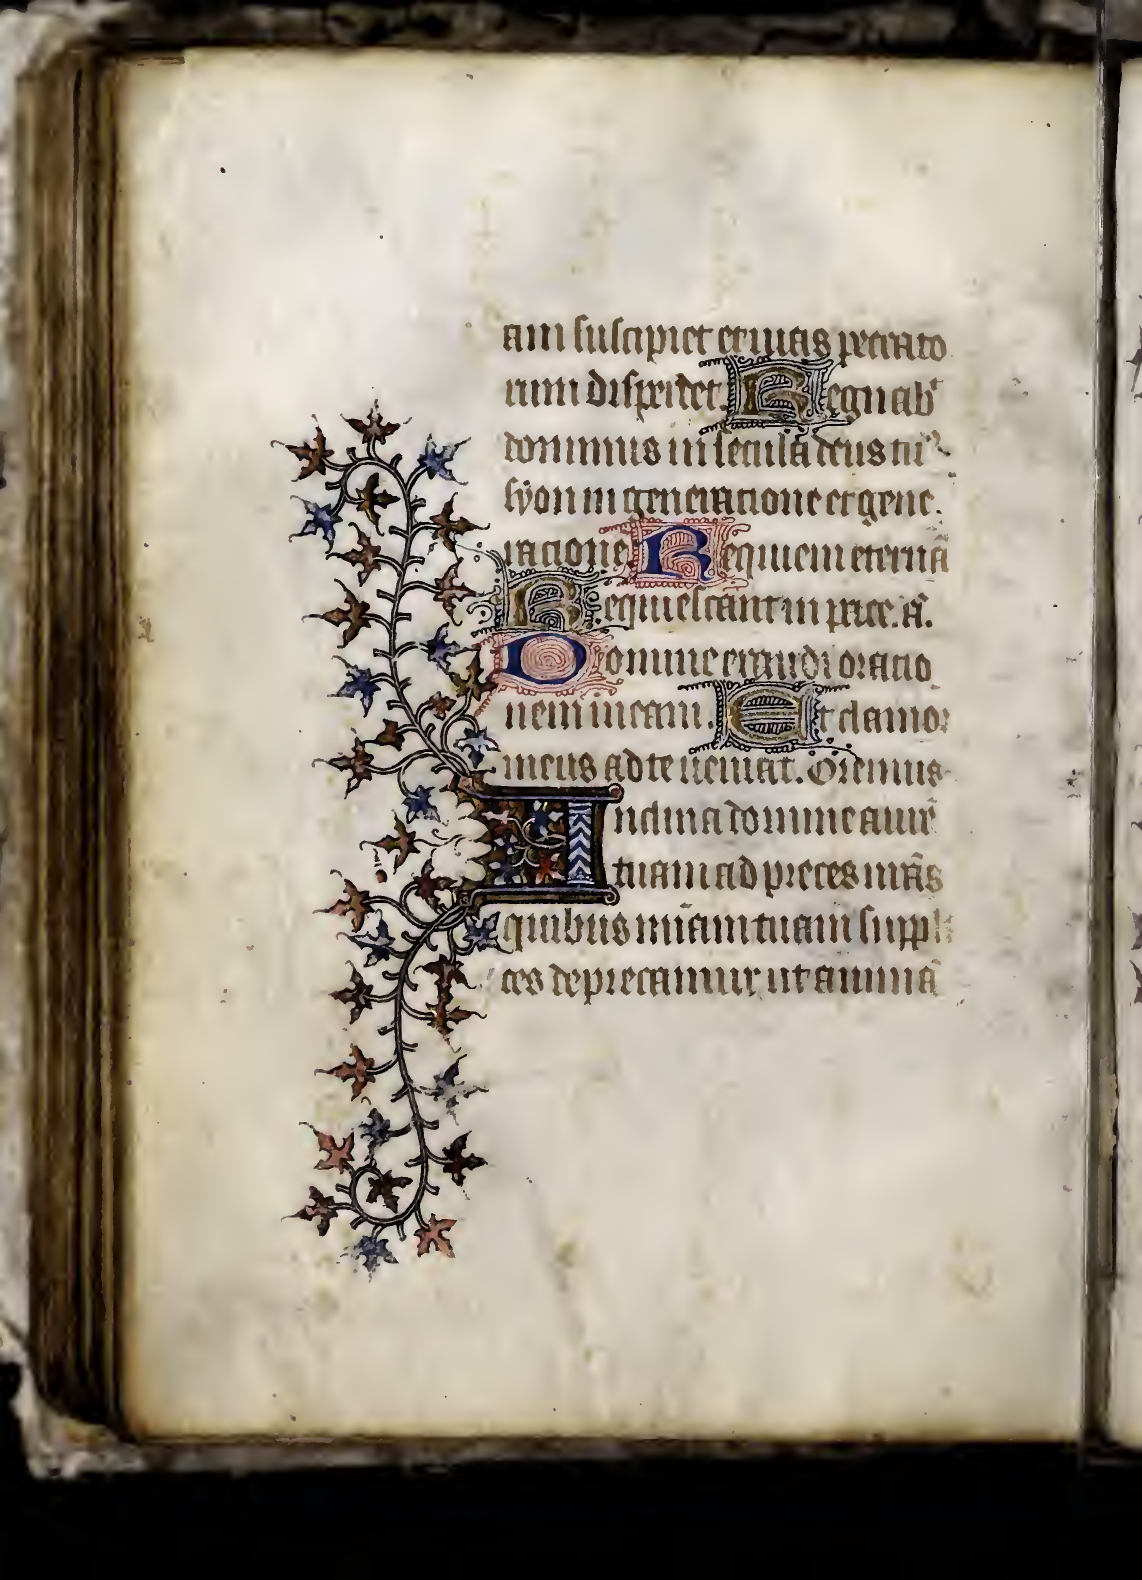 am suscipiet et uias peccato
rum disperdet. Regnab᷑
dominus in secula deus tu᷒
syon in generatione et gene
ratione. Requiem eternā
Requiescant in pace. aᷓ.
Domine exaudi oratio
nem meam. Et clamor
meus ad te ueniat. Oremus
Inclina domine aurē
tuam ad preces nr̄as
quibus mīam tuam suppli
ces deprecamur ut animā